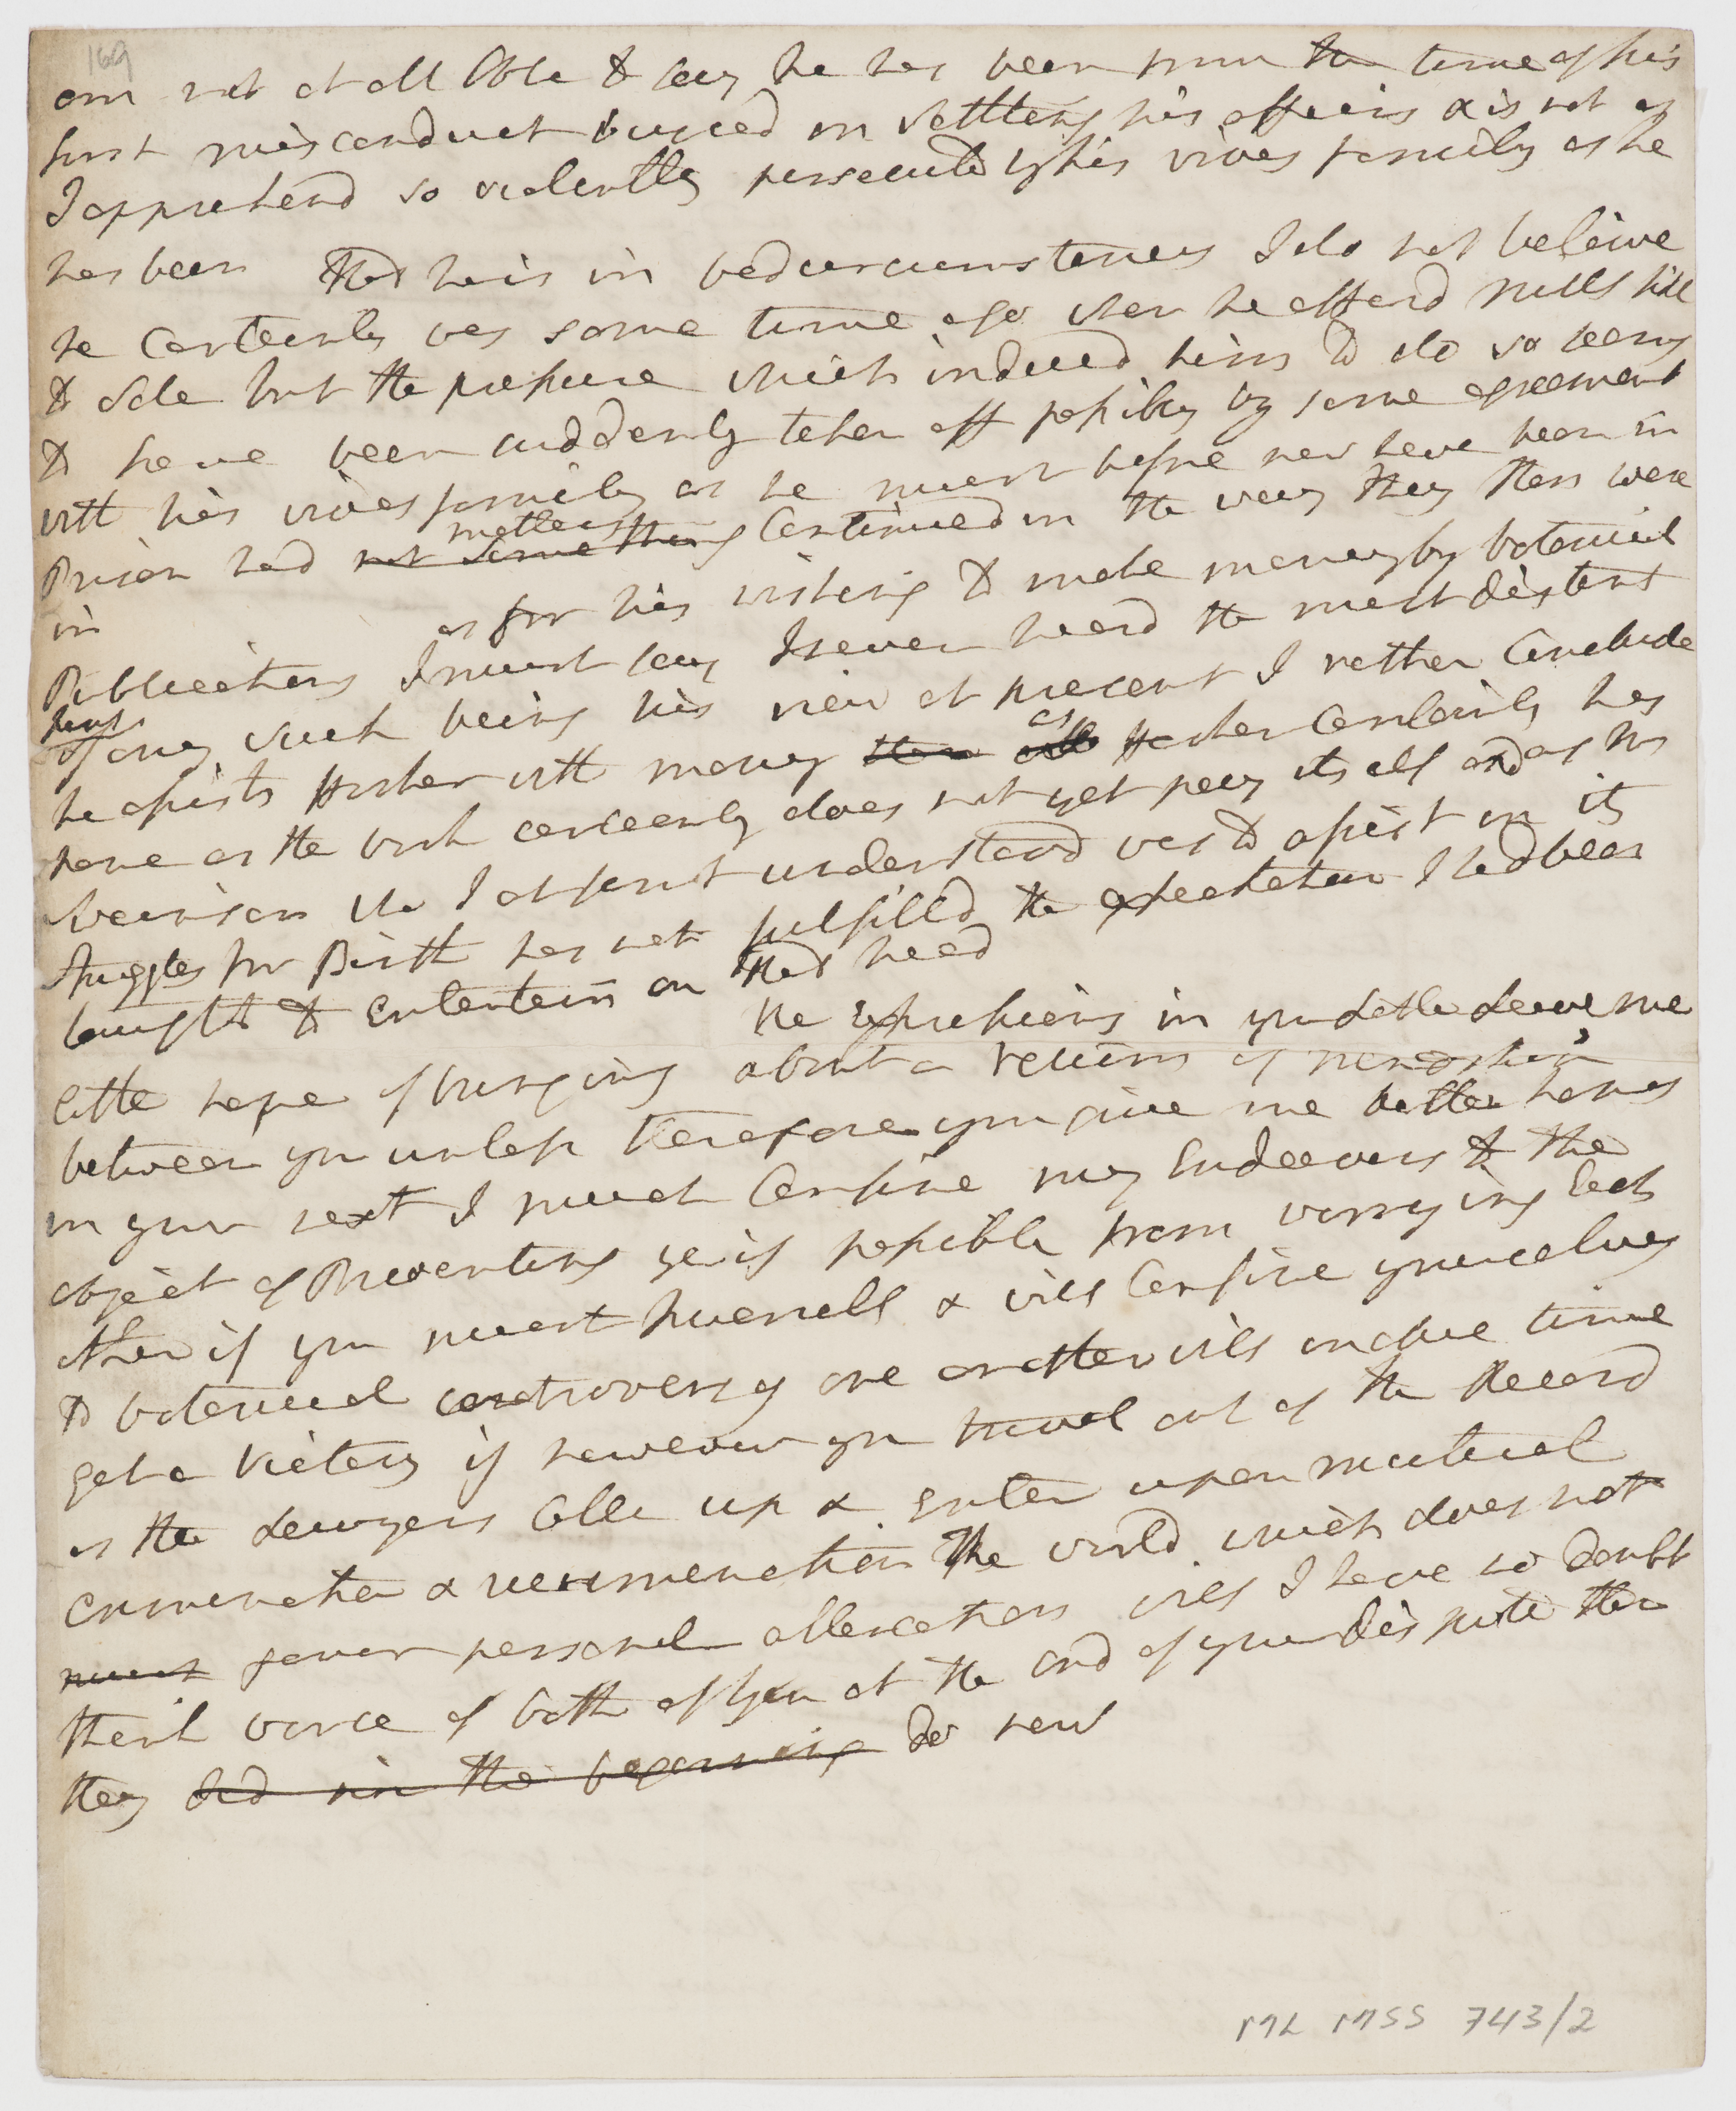 169
am not at all Able to say he has been from the time of his
first misconduct buried in Settleing his affairs & is not as
I apprehend so violently persecuted by his wives family as he
has been That he is in bad circumstances I do not beleive
he Certainly was some time ago when he offerd Mill hill
to Sale but the pressure which induced him to do so seems
to have been suddenly taken off possibly by some agreement
with his wives family as he must before now have been in
Prison had not something matters Continued in the way they then were
in as for his wishing to make money by botanical
Publications I must say I never heard the most distant
hint of any such being his view at present I rather Conclude
he assists Hooker with money as Hooker Certainly has
none as the work certainly does not yet pay itself and as Mr
Swainson who I at first understood was to assist in it
struggles for Birth has not fulfilld the expectation I had been
taught to Entertain on that head
the expressions in your Letter Leave me
little hope of bringing about a return of Friendship
between you unless therefore you give me better hopes
in your next I must Confine my Endeavors to the
object of Preventing ye if possible from worrying Each
other if you must Quarrell & will Confine yourselves
to botanical controversy one or other will in due time
get a Victory if however you travel out of the Record
as the Lawyers Calle up & Enter upon mutual
crimination & recrimination The world which does not
must favor personal altercation will I have no doubt
think worse of both of you at the end of your dispute than
they did in the beginning do now
ML MSS 743/2